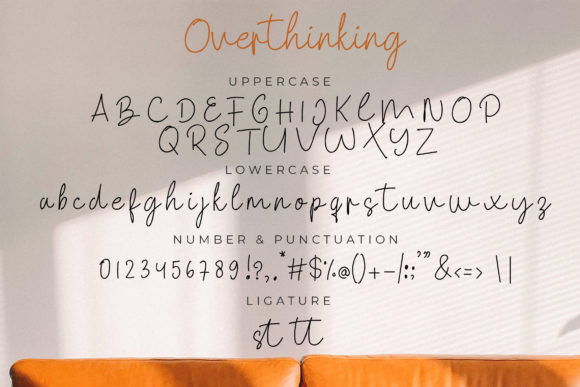 Overthinking
UPPERCASE
ABCDEFGHIJKLMNOP
QRSTUVWXYZ
LOWERCASE
abcdefghijklmnopqrstuvwxyz
NUMBER & PUNCTUATION
0123456789!?,.*#$%@()+-/:;'"&<=> \|
LIGATURE
st tt